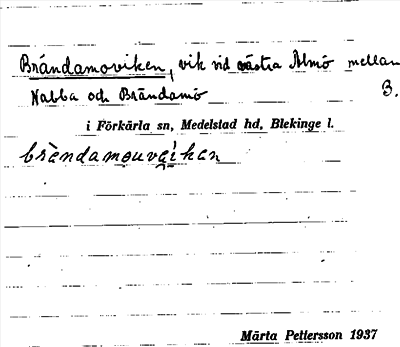 Brändamoviken, vik vid västra Almö mellan
Nabba och Brändamö B.
i Förkärla sn, Medelstad hd, Blekinge l.
brèndamouvèi̯kan
Märta Pettersson 1937